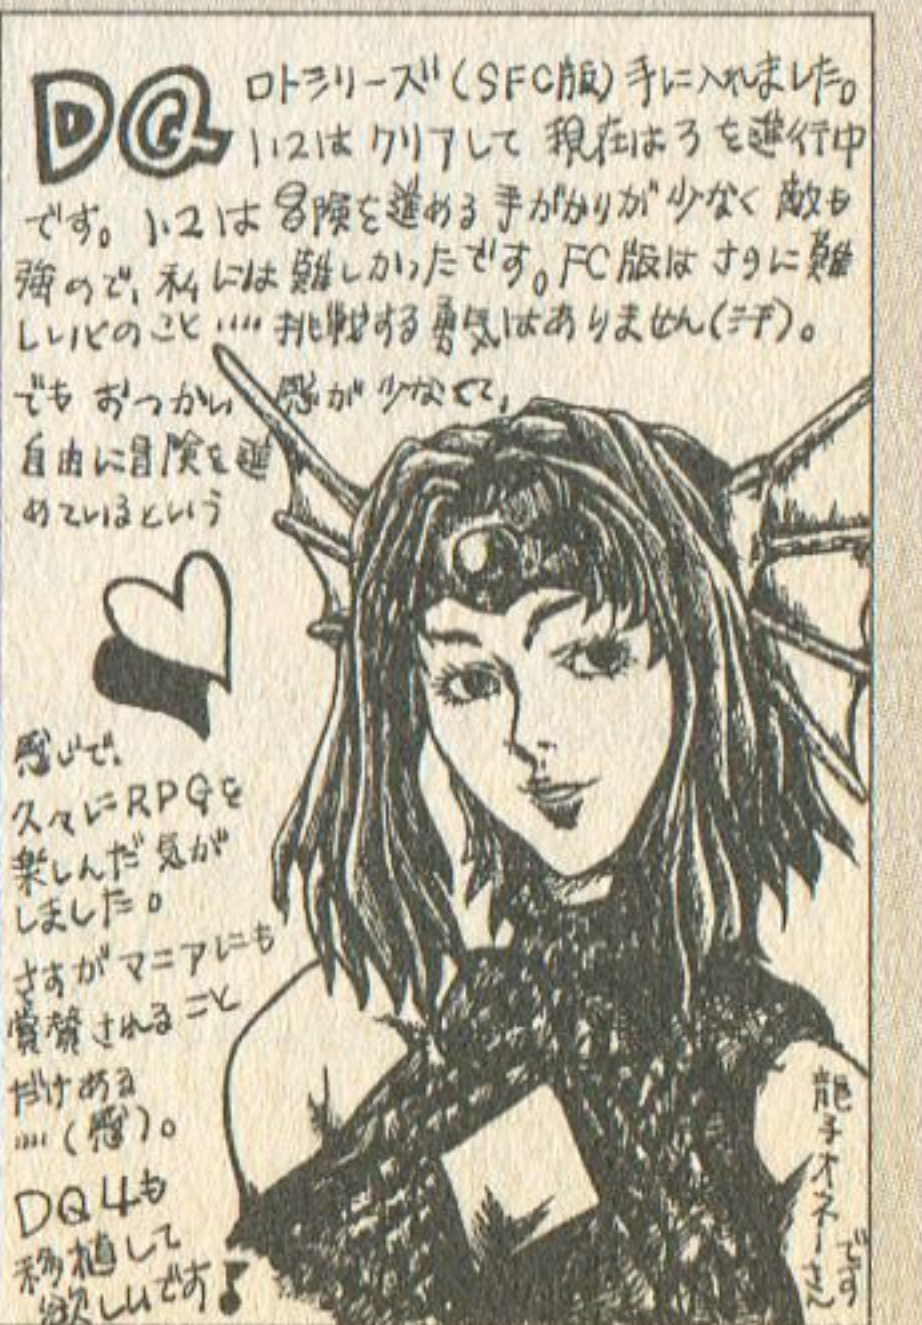 DQ ロトシリーズ(SFC版)手に入れました。
1、2は クリアして 現在は3を進行中
です。1、2は冒険を進める手がかりが少なく敵も
強ので、私には難しかったです。FC版はさらに難
しいとのこと‥‥挑戦する勇気はありません(汗)。
でもおつかい感が少なくて、
自由に冒険を進
めているという
感じで、
久々にRPGを
楽しんだ気が
しました。
さすがマニアにも
賞賛されること
だけある
‥‥(感)。
DQ4も
移植して
欲しいです♪
龍子オネーさん
です